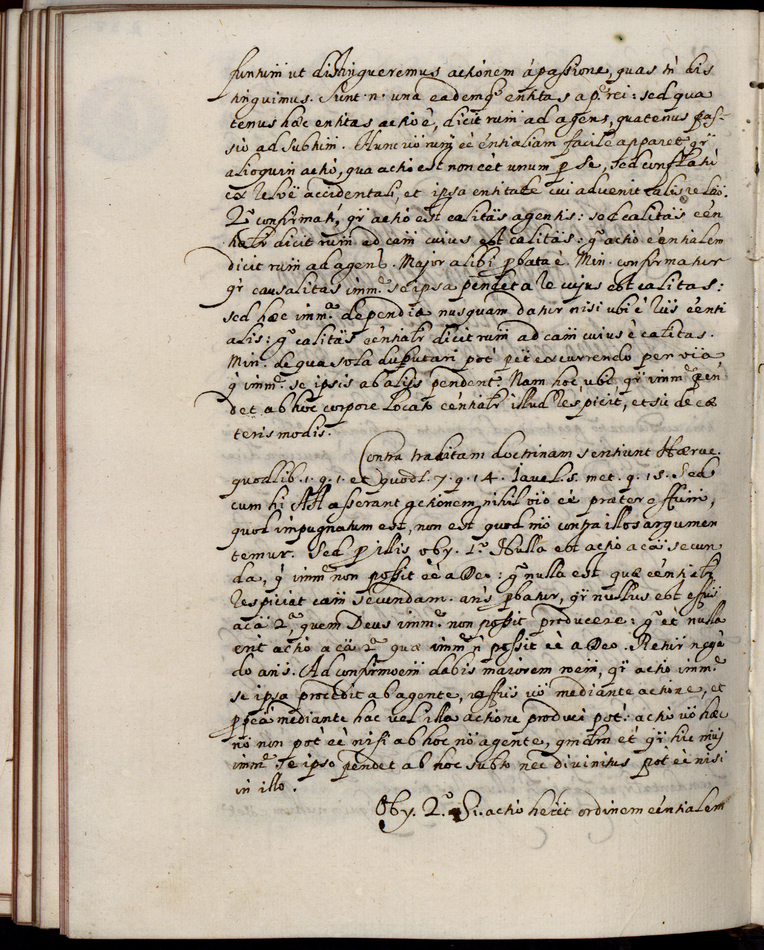 funtur ut distingueremus actionem á passione, quas tn̄ dis
tinguimus. Sunt .n. una eademq; entitas a p. rei: sed qua
tenus hæc entitas actio ē, dicit rum̄ ad agens, quatenus pas-
sio ad subtum̄. Hunc uō rum̄ eē ēntialiam facile apparet, qr̄
alioquin actio, qua actio est non eēt unum p se, sed conflati
ex resp̄ē accidentali, et ipsa entitate cui advenit talis relāo.
2.º confirmat, qr̄ actio est calitās agentis: sed calitās eēn
tialr̄ dicit rum̄ ad cam̄ cuius est calitās: g.º actio ēentialem
dicit rum̄ ad agens. Major alibi pbata ē. Min. confirmatur
qr̄ causalitas imm.e se ipsa pendet a re cujus est calitas:
sed hæc imm.a dependīa nusquam datur nisi ubi ē r̄us ēenti
alis: g.º calitās ēentialr̄ dicit rum̄ ad cam̄ cuius ē calitas.
Min. de qua sola disputari pot' pēt excurrendo per oīa
q̄ imm.e se ipsis ab alijs pendent. Nam hoc ubi qr̄ imm.e pen
det ab hoc corpore locato ēentialr̄ illud respicit, et sic de cæ
teris modis.
Contra traditam doctrinam sentiunt Hærue.
quodlib. 1. q. 1. et quodl. 7. q. 14. Iauel. 5. met. q. 15. Sed
cum hi AA asserant actionem, nihil oīo eē præter effūm,
quod impugnatum est, non est quod mō contra illos argumen
temur. Sed p illis obij. 1.º Nulla est actio a cā secun
da, q̄ imm.e non possit eē a Deo: g.º nulla est quæ ēentialr̄
respiciat cam̄ secundam. ans pbatur, qr̄ nullus est effūs
a cā 2.ª, quem Deus imm.e non possit producere: g.º et nulla
erit actio a cā 2.ª quæ imm.e n̄ possit eē a Deo. Retur negā
do ans. Ad confirmōem dabis maiorem rōem, qr̄ actio imm.e
se ipsa procedit ab agente, effūs uō mediante actione, et
p̄p̄ea mediante hac vel illa actione produci pot': actio uō hæc
nō non pot' eē nisi ab hoc nō agente, qmdm̄ et qr̄ hic m̄us
imm.e se ipso pendet ab hoc subto nec divinitus pot' eē nisi
in illo.
Obij. 2.º Si actio heret ordinem ēentialem